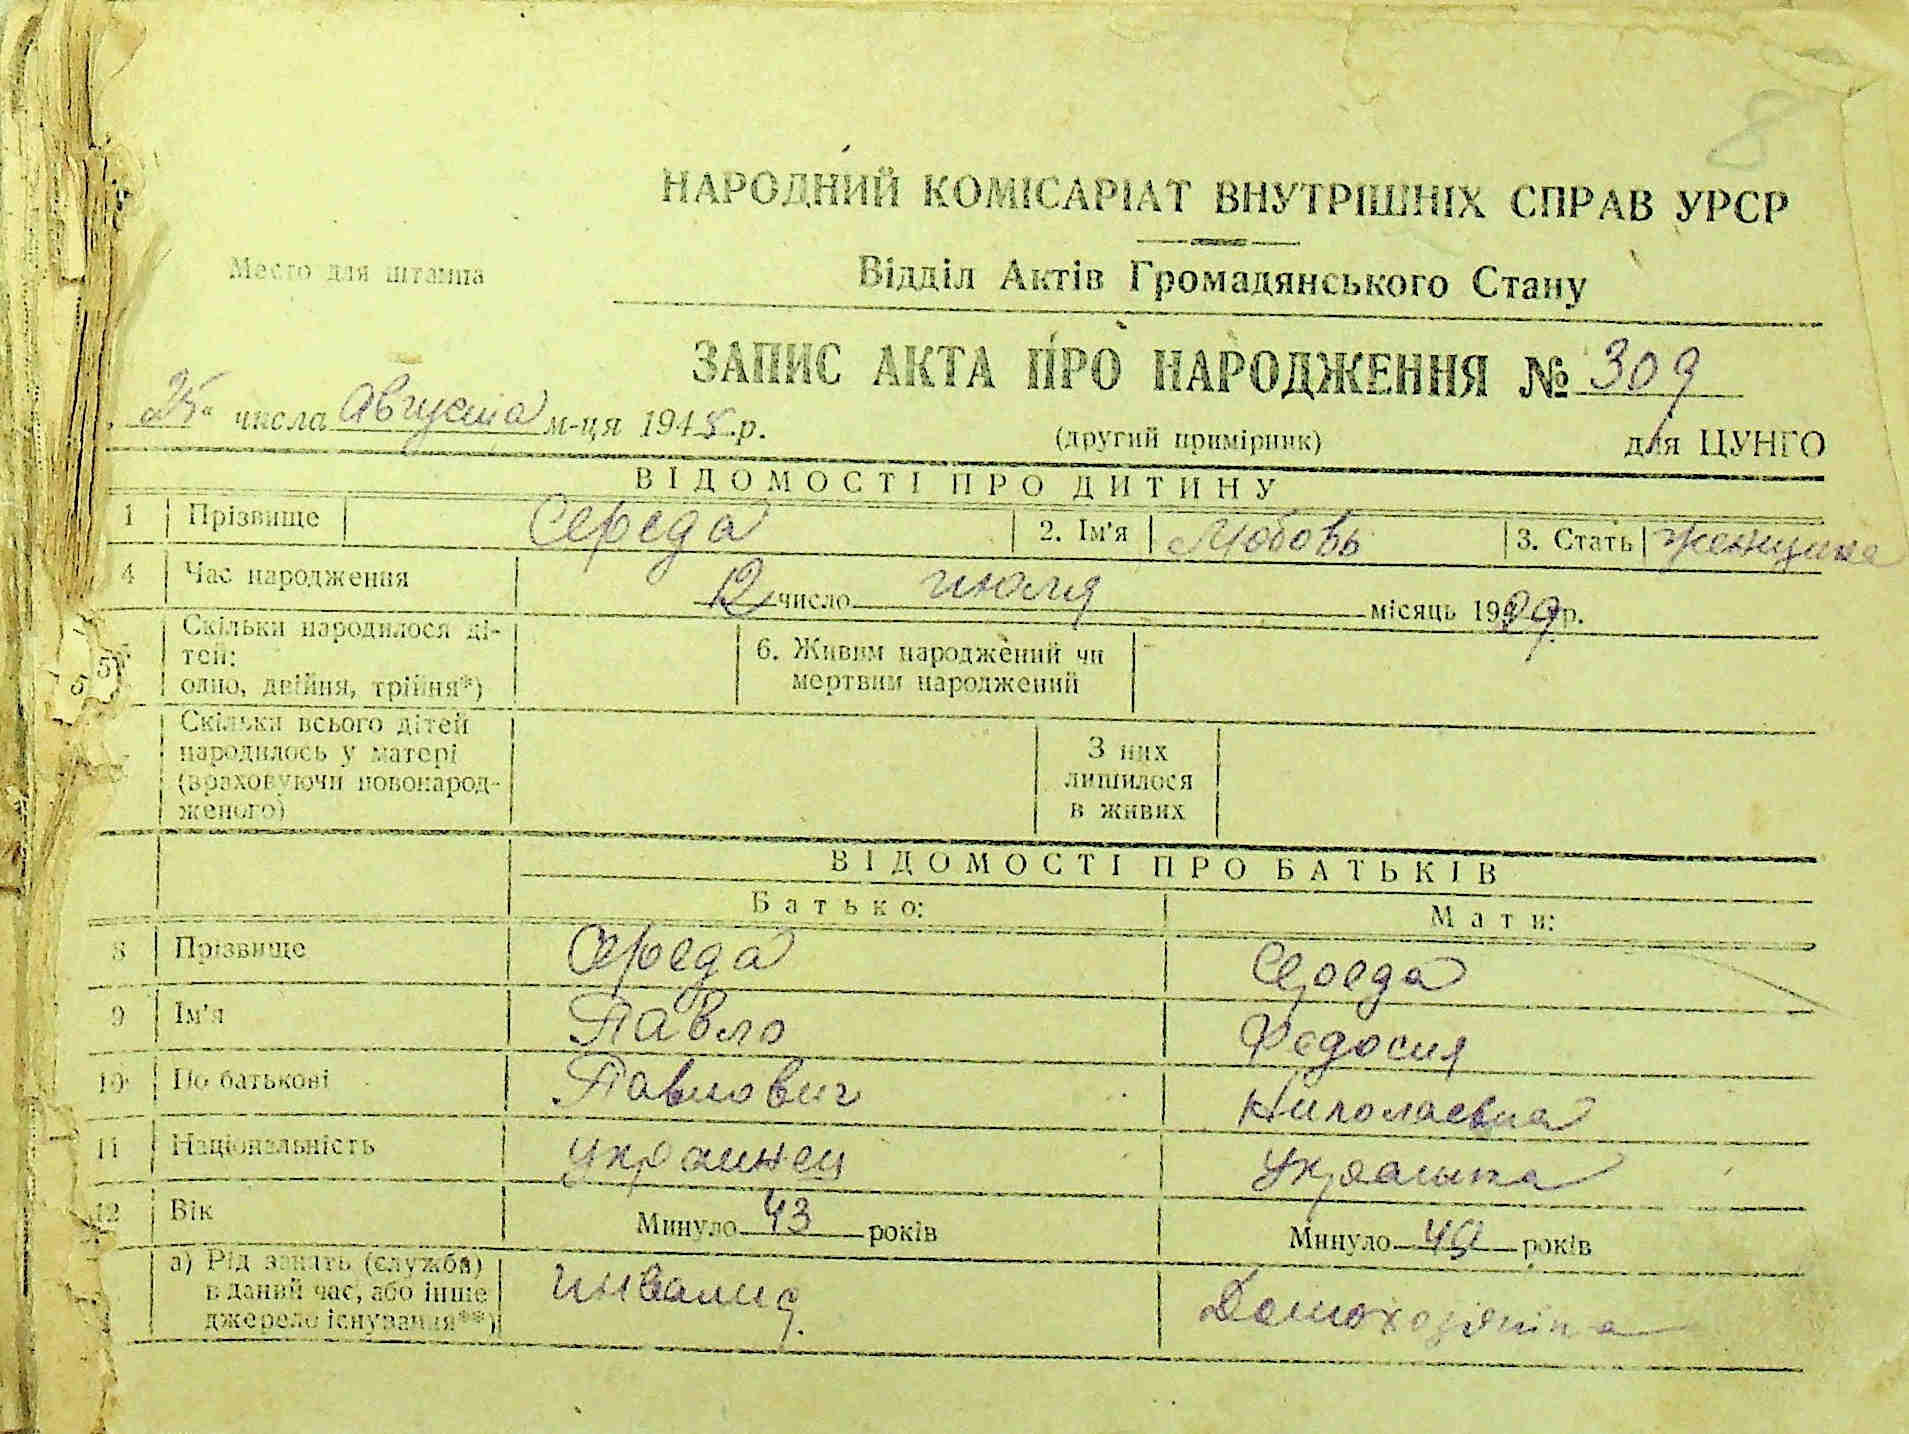 8
НАРОДНИЙ КОМІСАРІАТ ВНУТРІШНІХ СПРАВ УРСР
Место для штампа
Відділ Актів Громадянського Стану
ЗАПИС АКТА ПРО НАРОДЖЕННЯ № 309
"25" числа Августа м-ця 1945 р.
(другий примірник) для ЦУНГО
ВІДОМОСТІ ПРО ДИТИНУ
1 Прізвище Середа 2. Ім'я Любовь 3. Стать женщина
4 Час народження 12 число июля місяць 1929 р.
Скільки народилося ді-
тей:
одно, двійня, трійня*)
6. Живим народжений чи
мертвим народжений
55
Скільки всього дітей
народилось у матері
(враховуючи новонарод-
женого)
З них
лишилося
в живих
ВІДОМОСТІ ПРО БАТЬКІВ
Батько: Мати:
8 Прізвище Середа Середа
9 Ім'я Павло Федосия
10 По батькові Павлович Николаевна
11 Національність украинец Украинка
12 Вік Минуло 43 років Минуло років
а) Рід занять (служба)
в даний час, або інше
джерело існування**)
инвалид. Домохозяйка